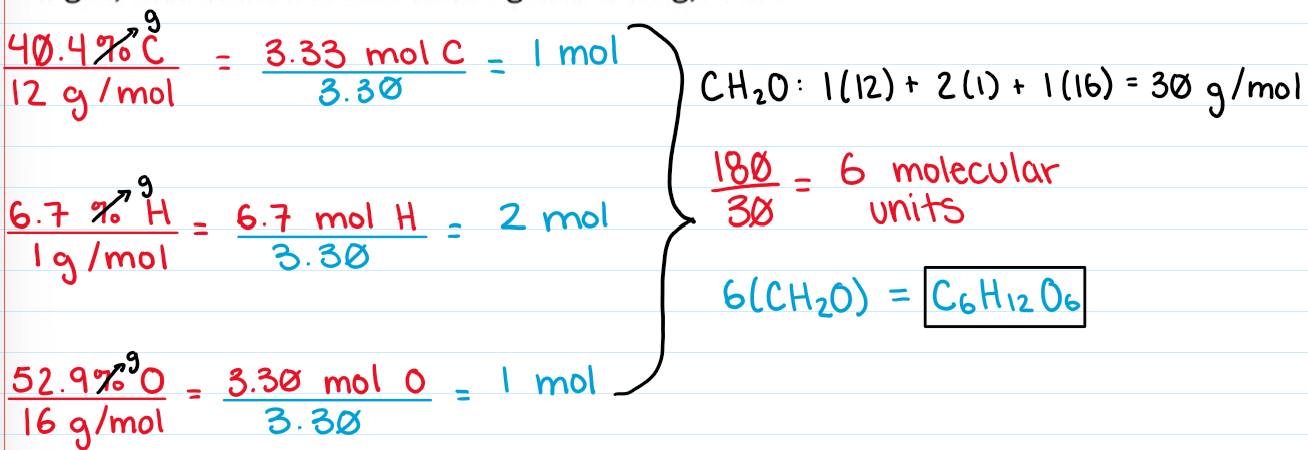 40.4% g C / 12 g/mol = 3.33 mol C / 3.30 = 1 mol
6.7 % g H / 1 g/mol = 6.7 mol H / 3.30 = 2 mol
52.9% g O / 16 g/mol = 3.30 mol O / 3.30 = 1 mol
CH₂O: 1(12) + 2(1) + 1(16) = 30 g/mol
180 / 30 = 6 molecular
units
6(CH₂O) = C₆H₁₂O₆